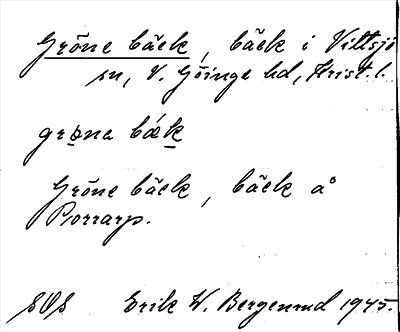 Gröne bäck, bäck i Vittsjö
sn, V. Göinge hd, Krist. l.
grøna bǽk
Gröne bäck, bäck å
Porrarp.
SOS Erik W. Bergenrud 1945.